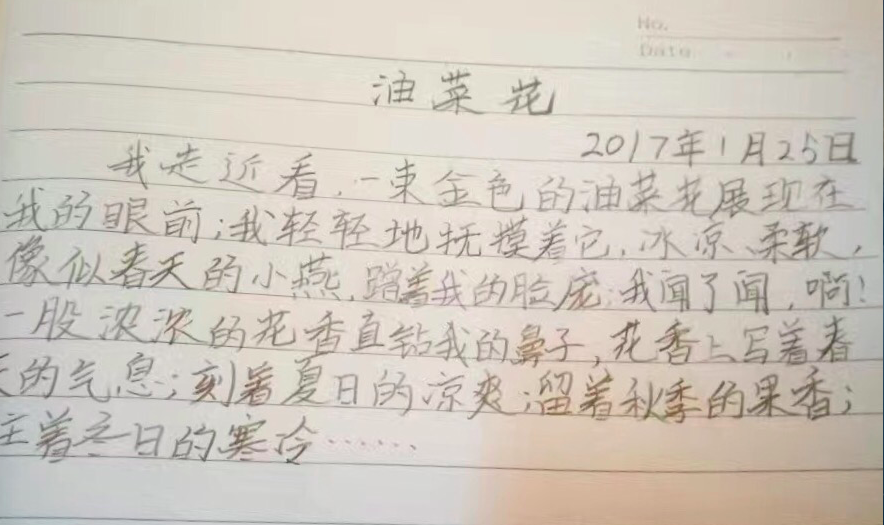 No.
Date
油菜花
2017年1月25日
我走近看,一束金色的油菜花展现在
我的眼前;我轻轻地抚摸着它,冰凉、柔软,
像似春天的小燕,蹭着我的脸庞;我闻了闻,啊!
一股浓浓的花香直钻我的鼻子,花香上写着春
天的气息;刻着夏日的凉爽;留着秋季的果香;
着冬日的寒冷……